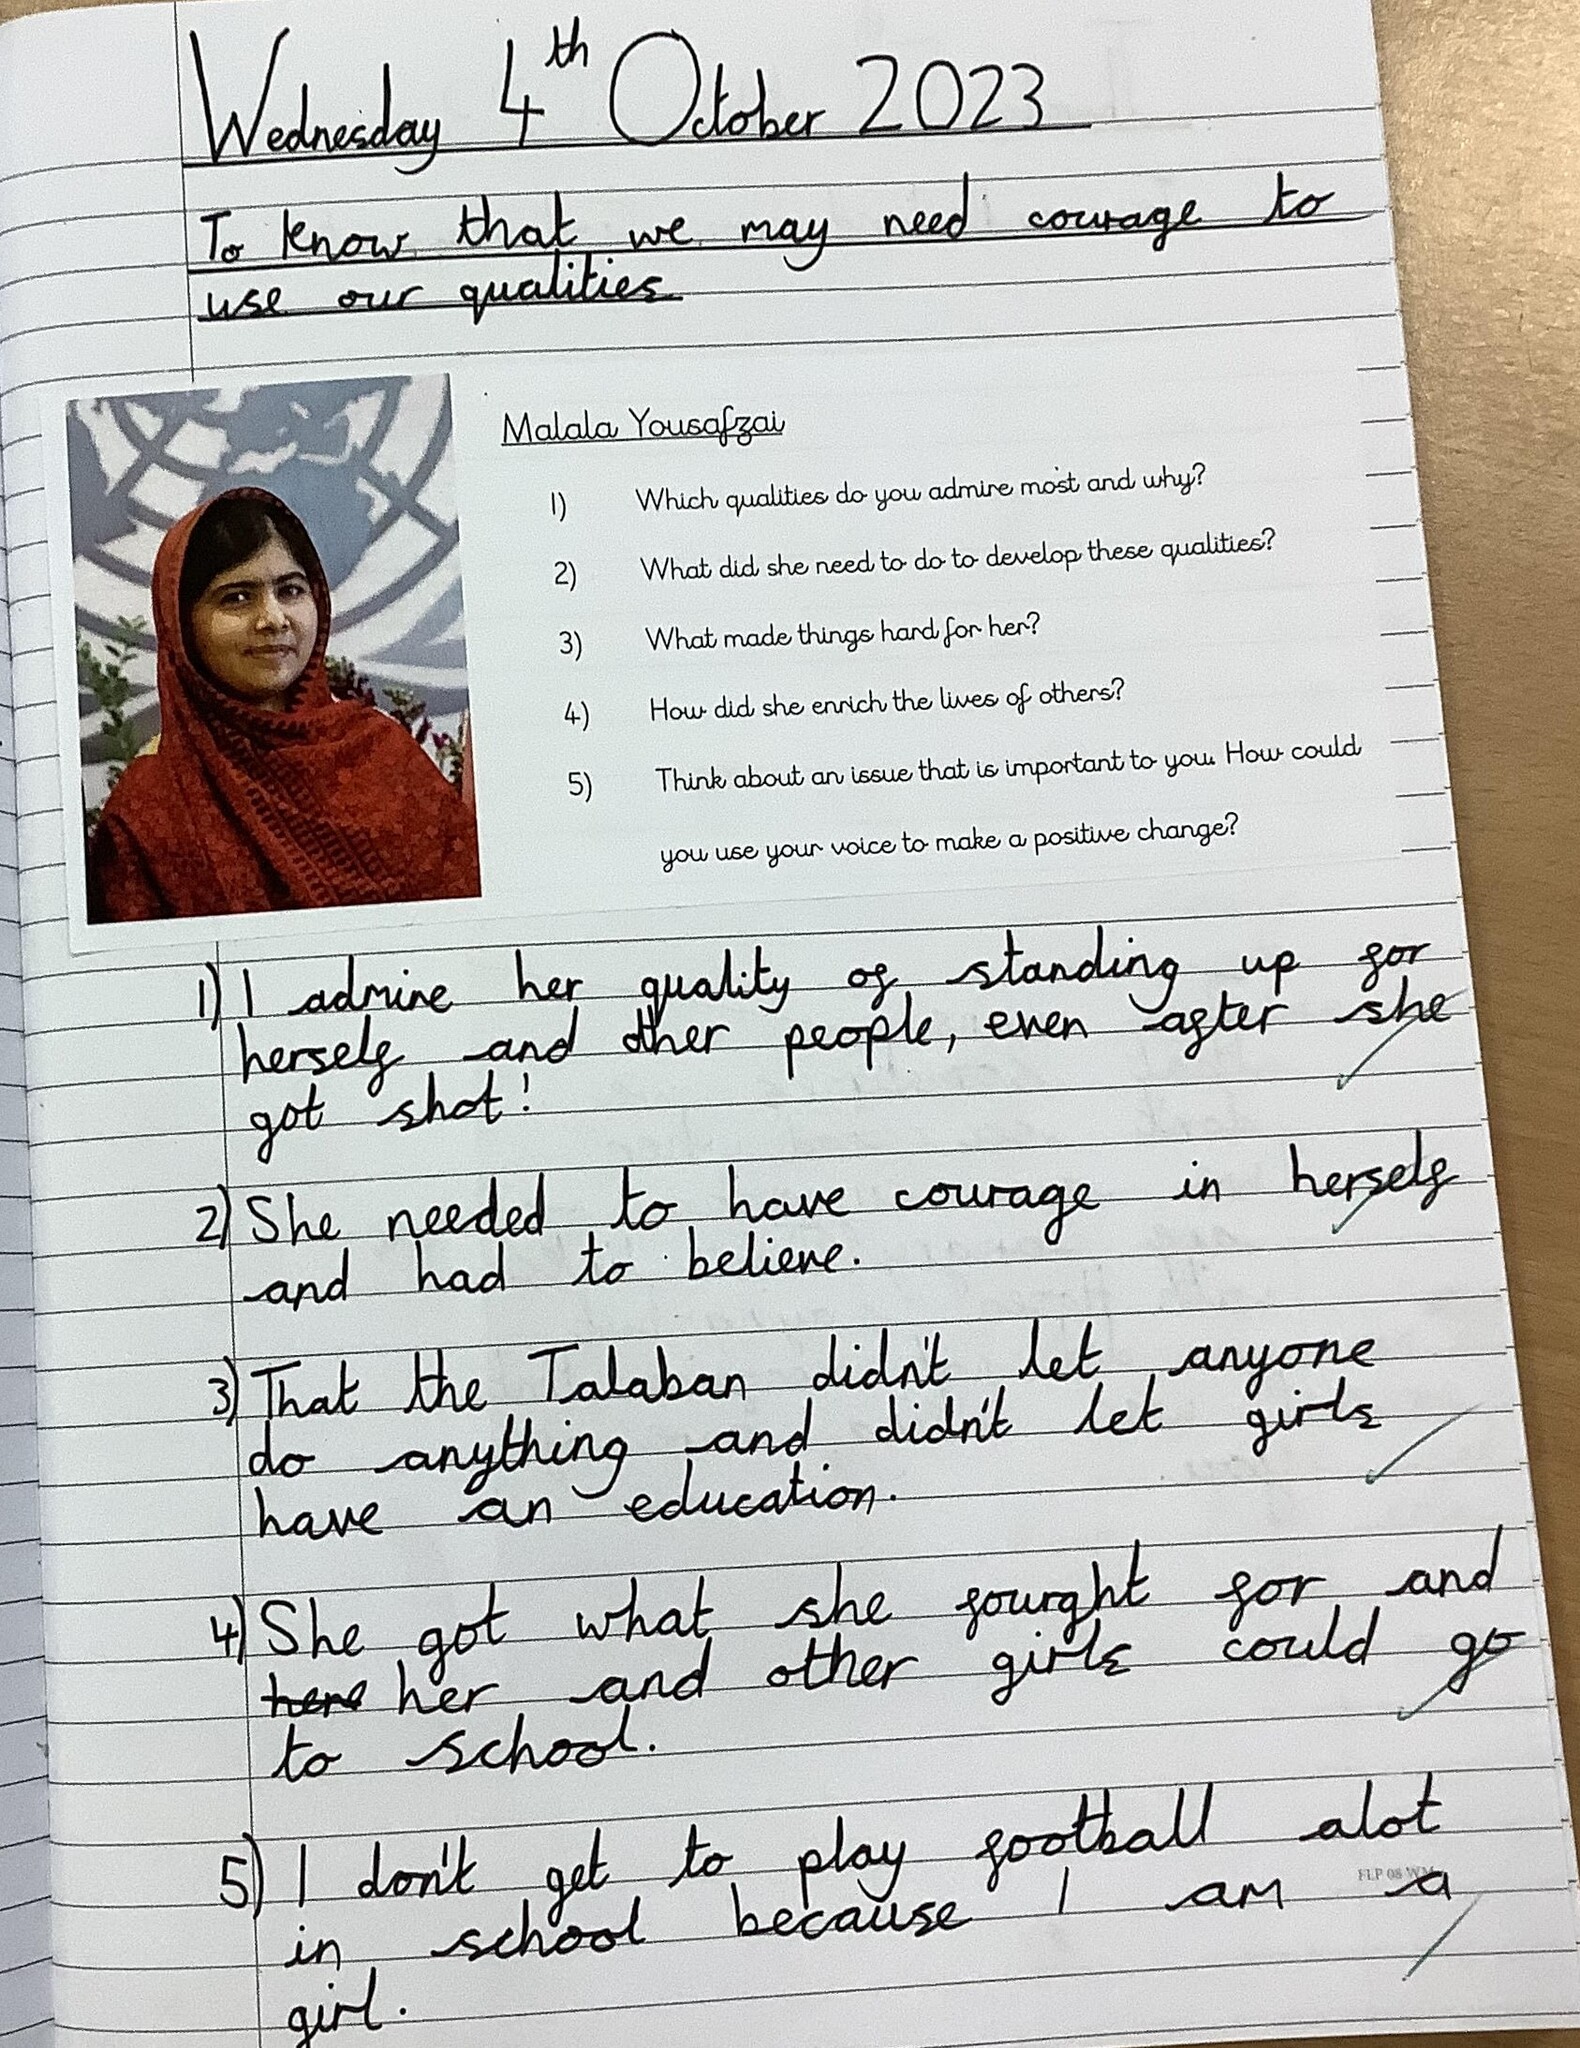 Wednesday 4th October 2023
To know that we may need courage to
use our qualities
Malala Yousafzai
1) Which qualities do you admire most and why?
2) What did she need to do to develop these qualities?
3) What made things hard for her?
4) How did she enrich the lives of others?
5) Think about an issue that is important to you. How could
you use your voice to make a positive change?
1) I admire her quality of standing up for
herself and other people, even after she
got shot!
2) She needed to have courage in herself
and had to believe.
3) That the Talaban didn't let anyone
do anything and didn't let girls
have an education.
4) She got what she fourght for and
here her and other girls could go
to school.
5) I don't get to play football alot
FLP 08 WM
in school because I am a
girl.